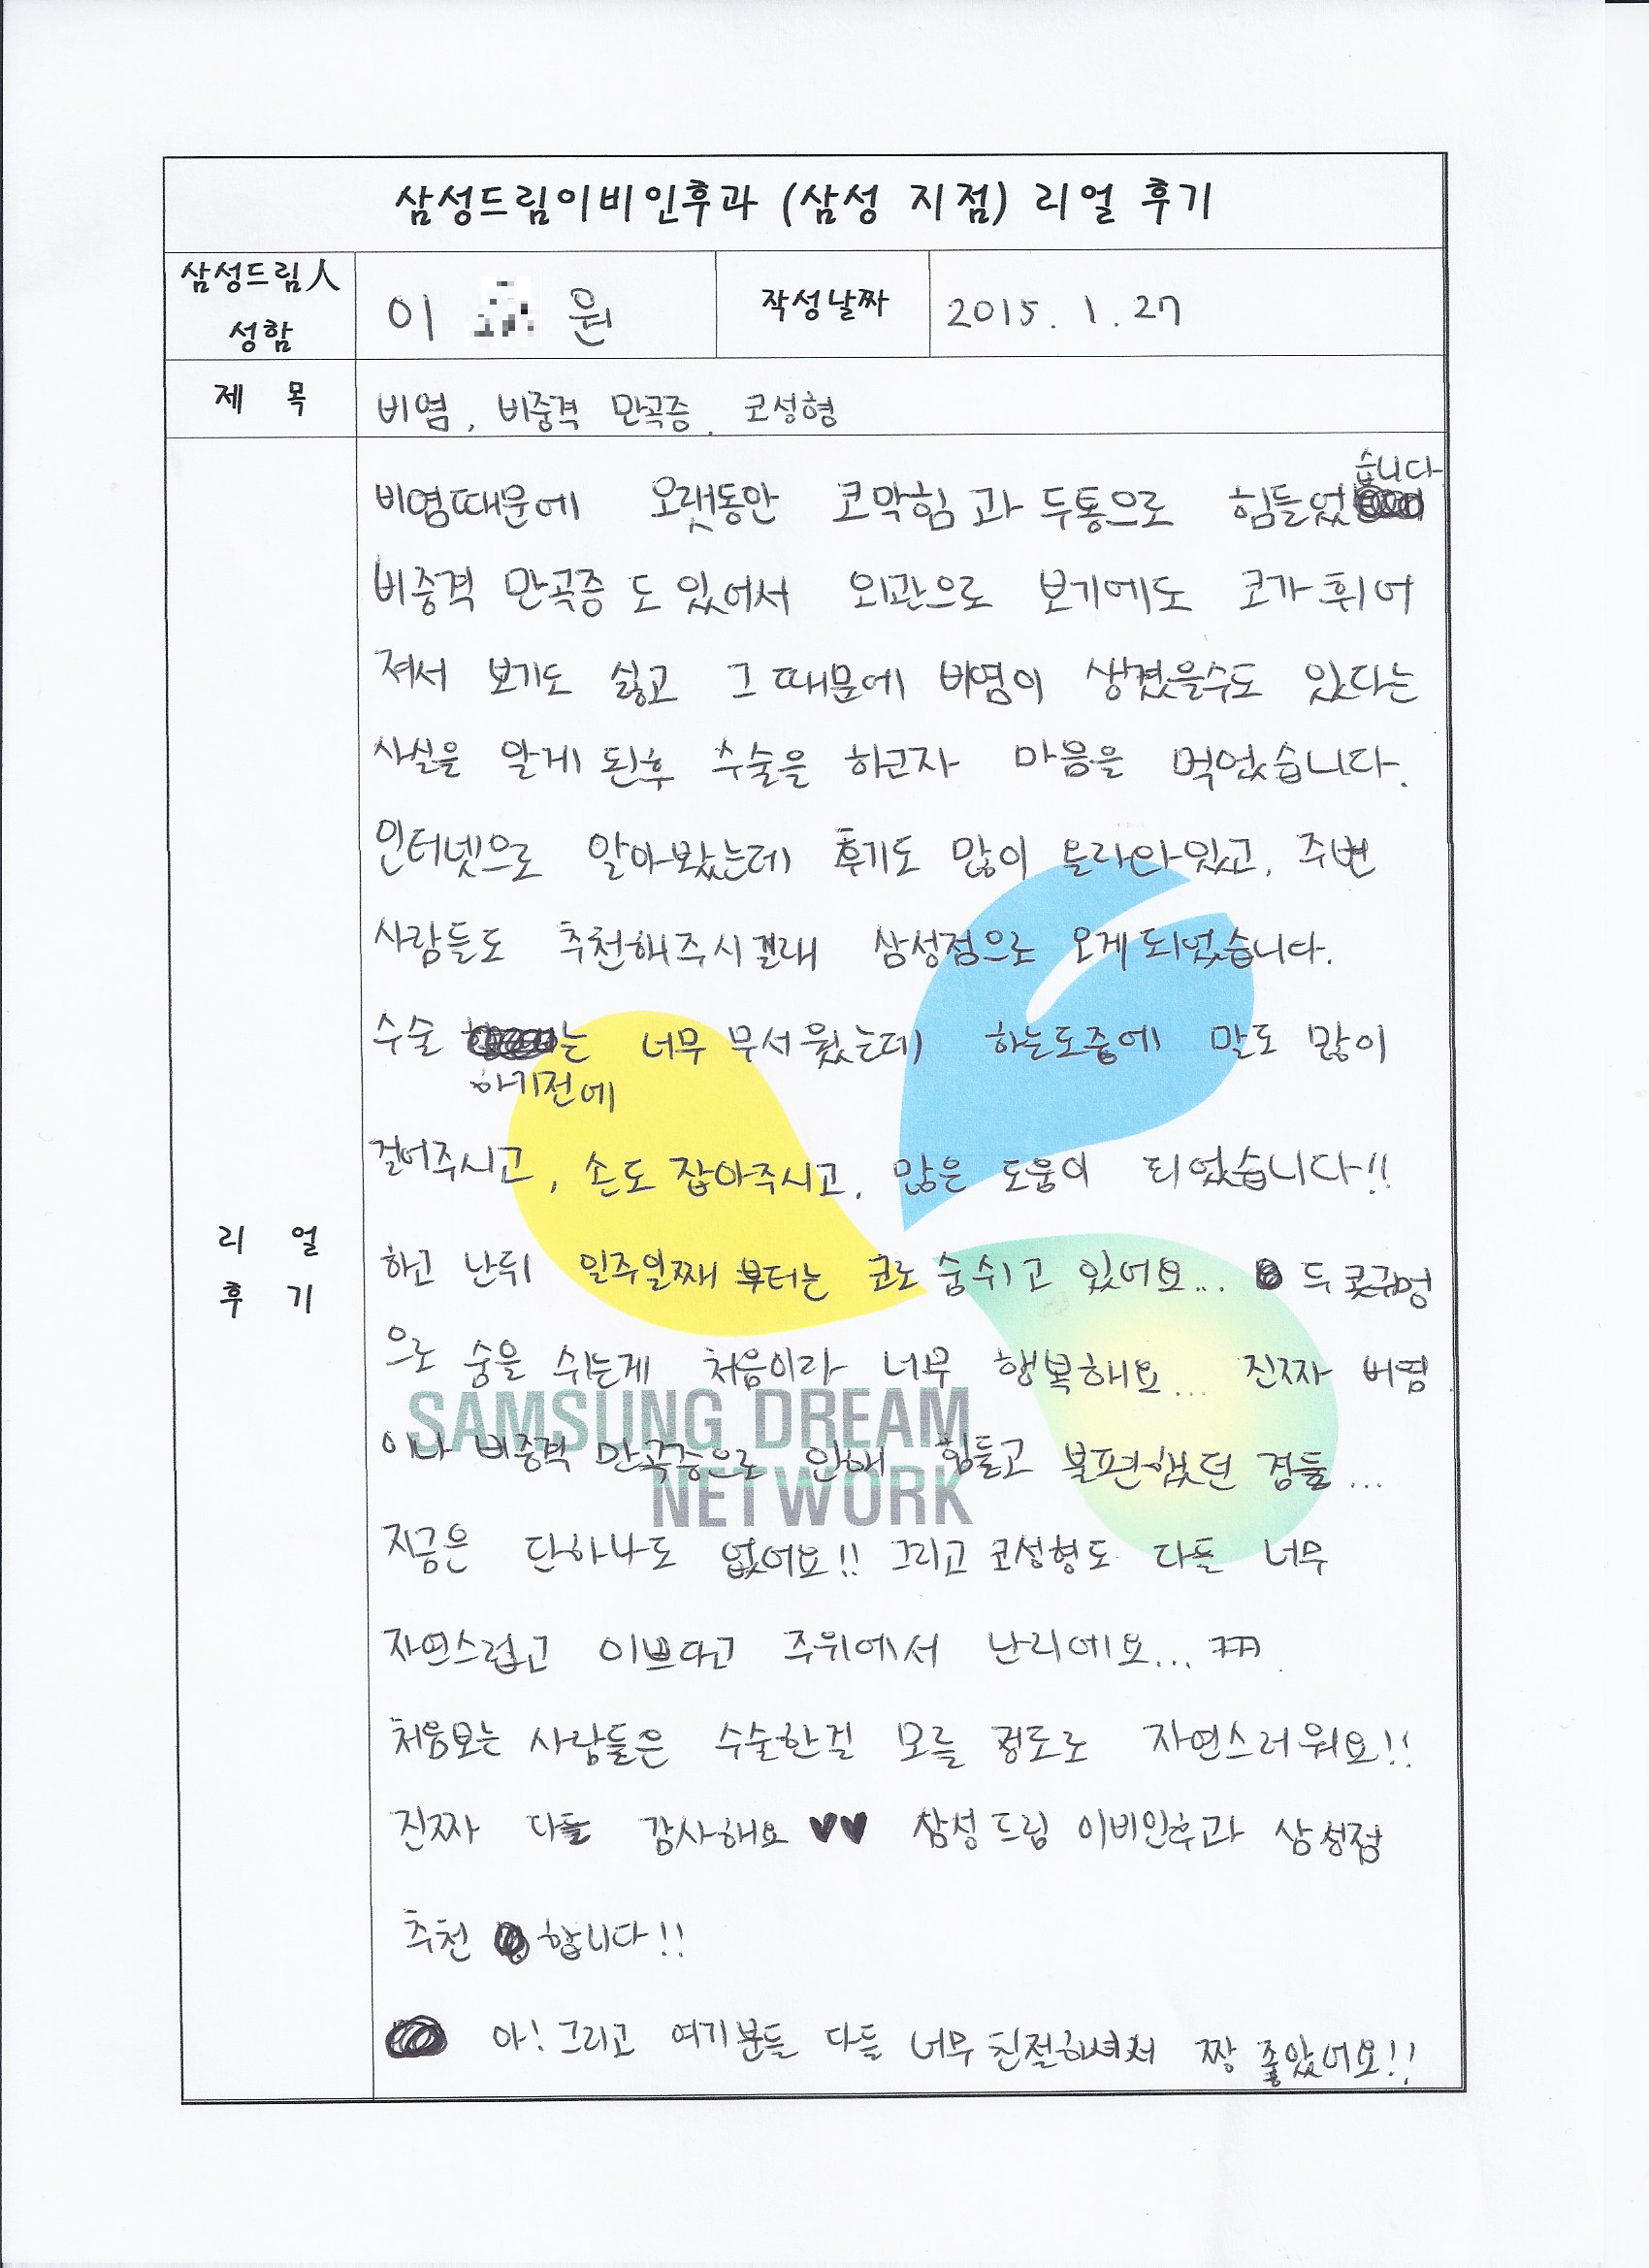 삼성드림이비인후과 (삼성 지점) 리얼 후기
삼성드림人
성함
이 원
작성날짜
2015. 1. 27
제 목
비염, 비중격 만곡증, 코성형
리 얼
후 기
비염때문에 오랫동안 코막힘과 두통으로 힘들었습니다
비중격 만곡증도 있어서 외관으로 보기에도 코가 휘어
져서 보기도 싫고 그때문에 비염이 생겼을수도 있다는
사실을 알게 된후 수술을 하고자 마음을 먹었습니다.
인터넷으로 알아봤는데 후기도 많이 올라와있고, 주변
사람들도 추천해주시길래 삼성점으로 오게되었습니다.
수술 하기전에는 너무 무서웠는데 하는도중에 말도 많이
걸어주시고, 손도 잡아주시고, 많은 도움이 되었습니다!!
하고 난뒤 일주일째 부터는 코로 숨쉬고 있어요... 두 콧구멍
으로 숨을 쉬는게 처음이라 너무 행복해요... 진짜 비염
이나 비중격 만곡증으로 인해 힘들고 불편했던 점들...
지금은 단하나도 없어요!! 그리고 코성형도 다들 너무
자연스럽고 이쁘다고 주위에서 난리에요... ㅋㅋㅋ.
처음보는 사람들은 수술한걸 모를 정도로 자연스러워요!!
진짜 다들 감사해요 ♥♥ 삼성드림 이비인후과 삼성점
추천 합니다!!
아! 그리고 여기분들 다들 너무 친절하셔서 짱 좋았어요!!
SAMSUNG DREAM
NETWORK